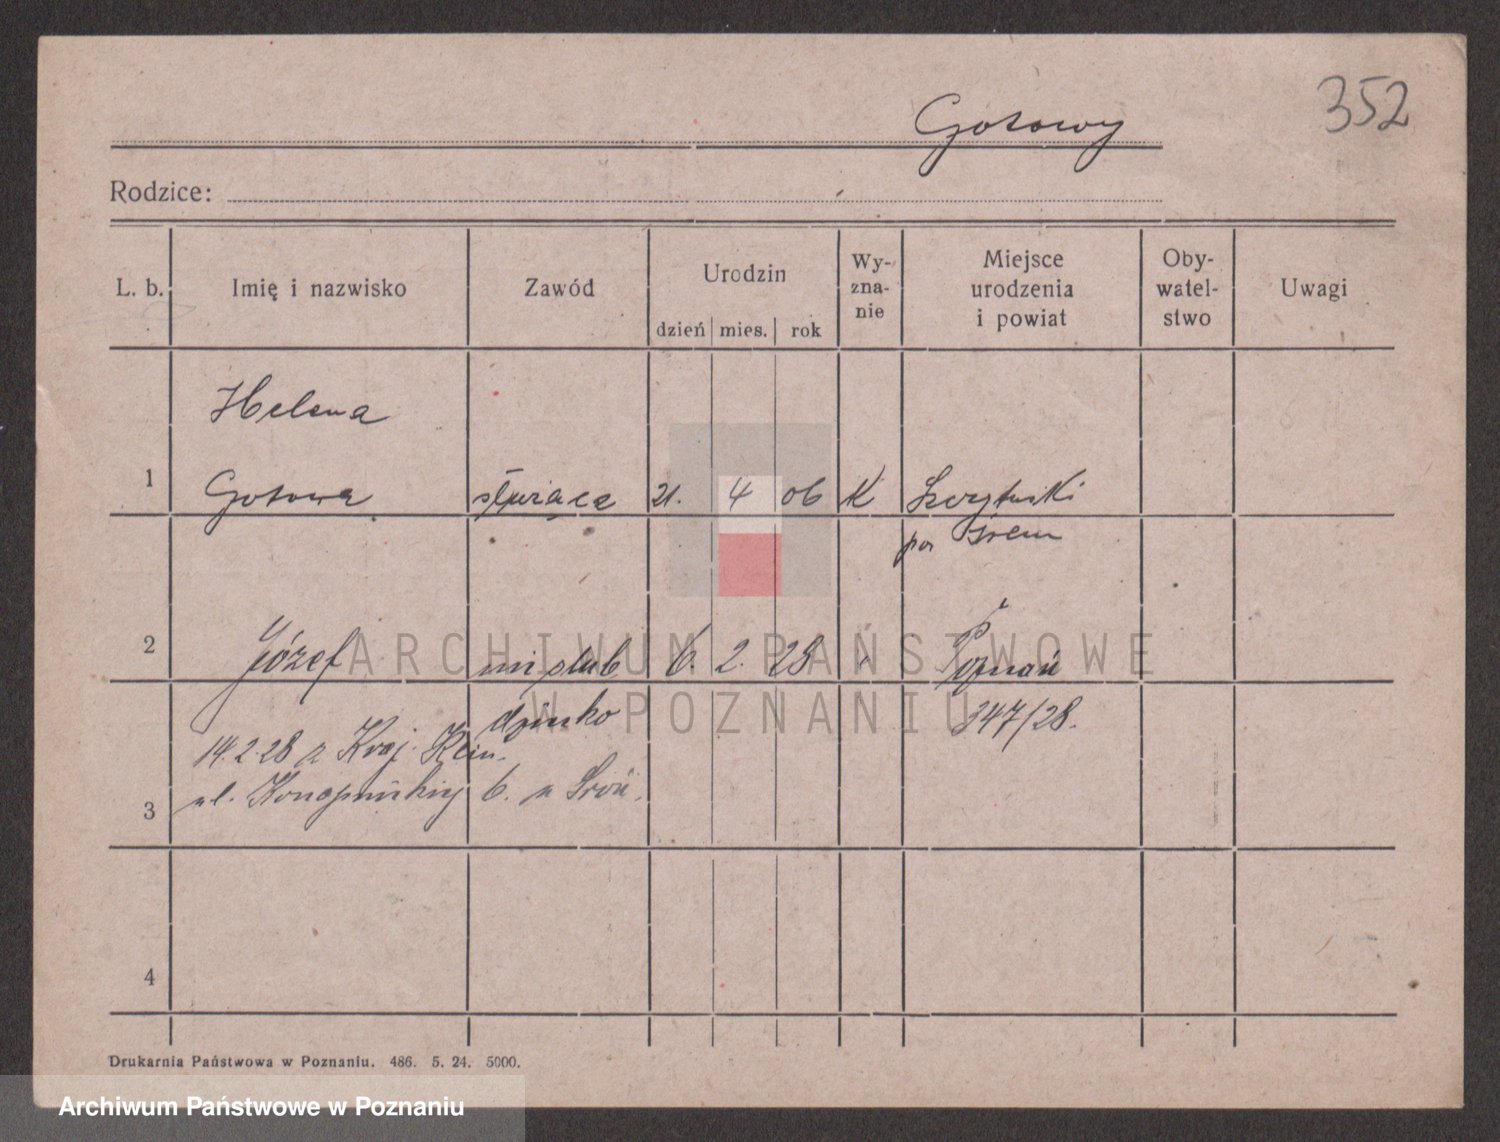 352
Gotowy
Rodzice:
L. b. Imię i nazwisko Zawód Urodzin dzień mies. rok Wy-zna-nie Miejsce urodzenia i powiat Oby-watel-stwo Uwagi
Helena
1 Gotowa służąca 21. 4 06 K
pow Śrem
2 Józef nieślub 6. 2. 28 " Poznań
dziecko 347/28.
14.2.28 z Kraj. Klin.
3 ul. 6. n
4
Drukarnia Państwowa w Poznaniu. 486. 5. 24. 5000.
ARCHIWUM PAŃSTWOWE
W POZNANIU
Archiwum Państwowe w Poznaniu